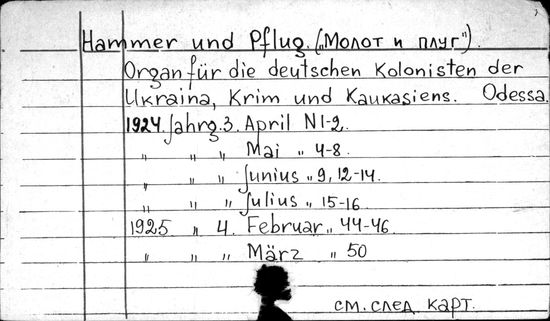 Hammer und Pflug. („Молот и плуг").
Organ für die deutschen Kolonisten der
Ukraina, Krim und Kaukasiens. Odessa.
1924. Jahrg. 3. April N1-2.
„ „ „ Mai „ 4-8.
„ „ „ Junius „ 9, 12-14.
„ „ „ Julius „ 15-16.
1925 „ 4. Februar „ 44-46.
„ „ „ März „ 50
см. след. карт.